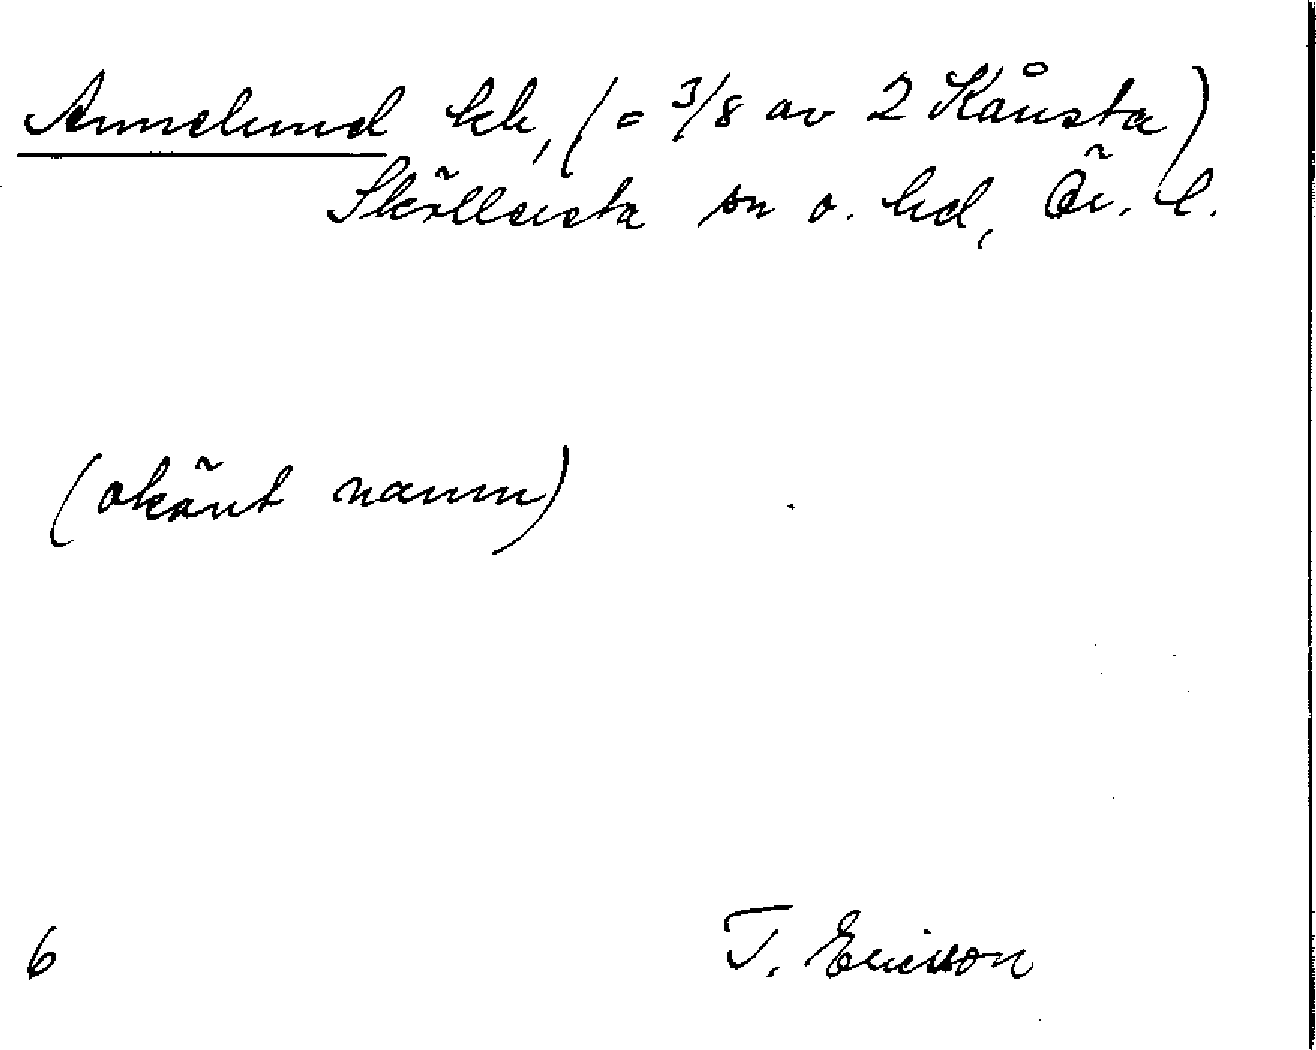 Annelund hh, (= 3/8 av 2 Kånsta)
Sköllersta sn o. hd, Ör. l.
(okänt namn)
6
T. Ericsson